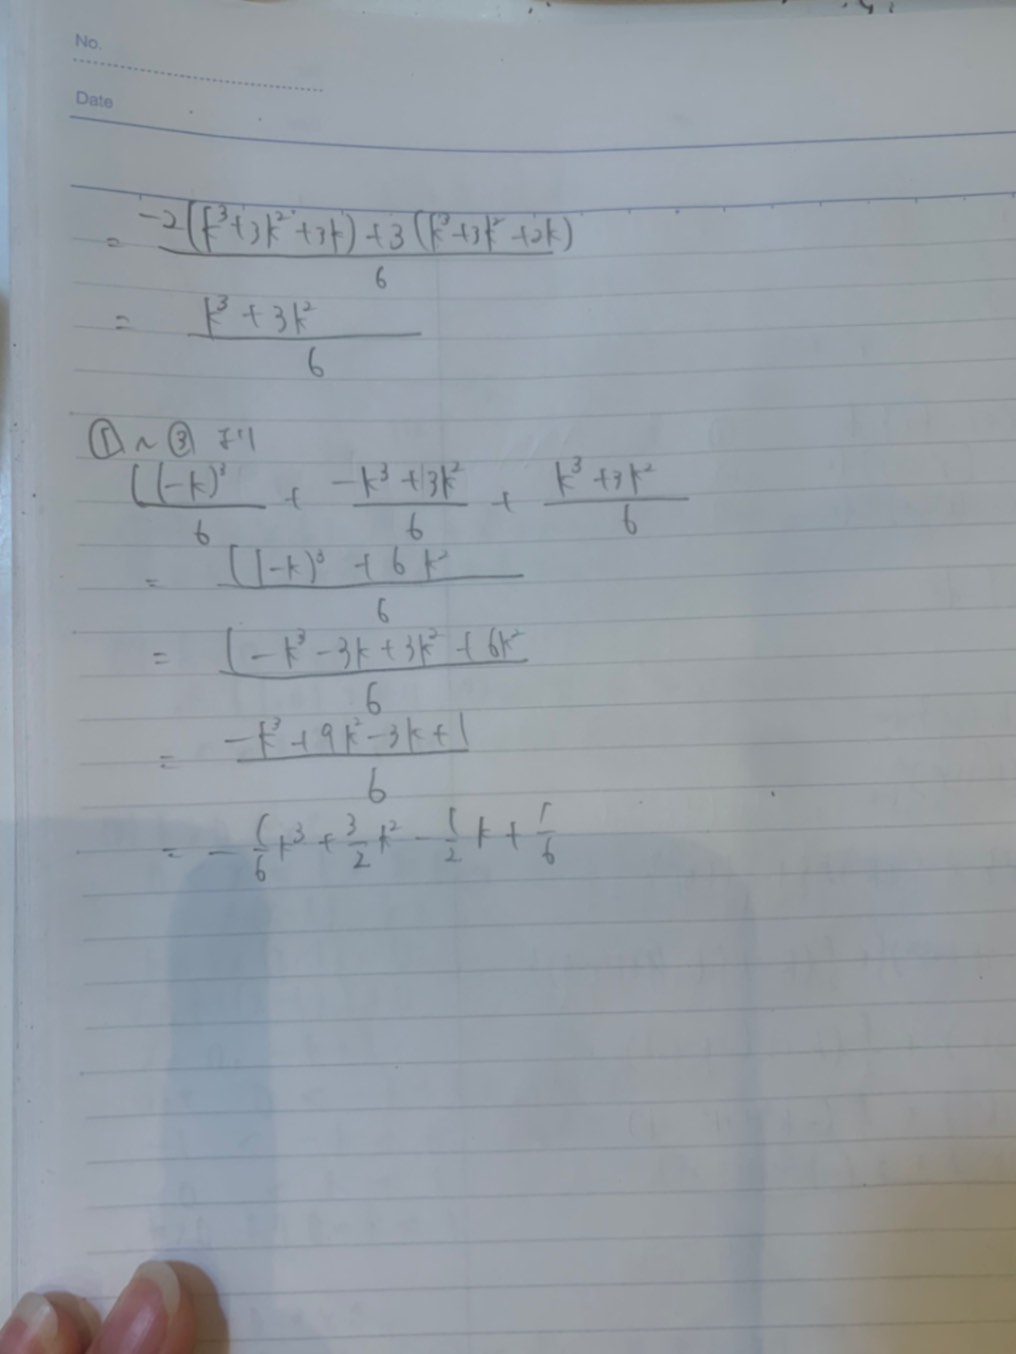 No.
Date
= \frac{-2(k³+3k²+3k)+3(k³+3k²+2k)}{6}
= \frac{k³+3k²}{6}
①~③より
\frac{(1-k)³}{6} + \frac{-k³+3k²}{6} + \frac{k³+3k²}{6}
= \frac{(1-k)³+6k²}{6}
= \frac{1-k³-3k+3k²+6k²}{6}
= \frac{-k³+9k²-3k+1}{6}
= -\frac{1}{6}k³+\frac{3}{2}k²-\frac{1}{2}k+\frac{1}{6}